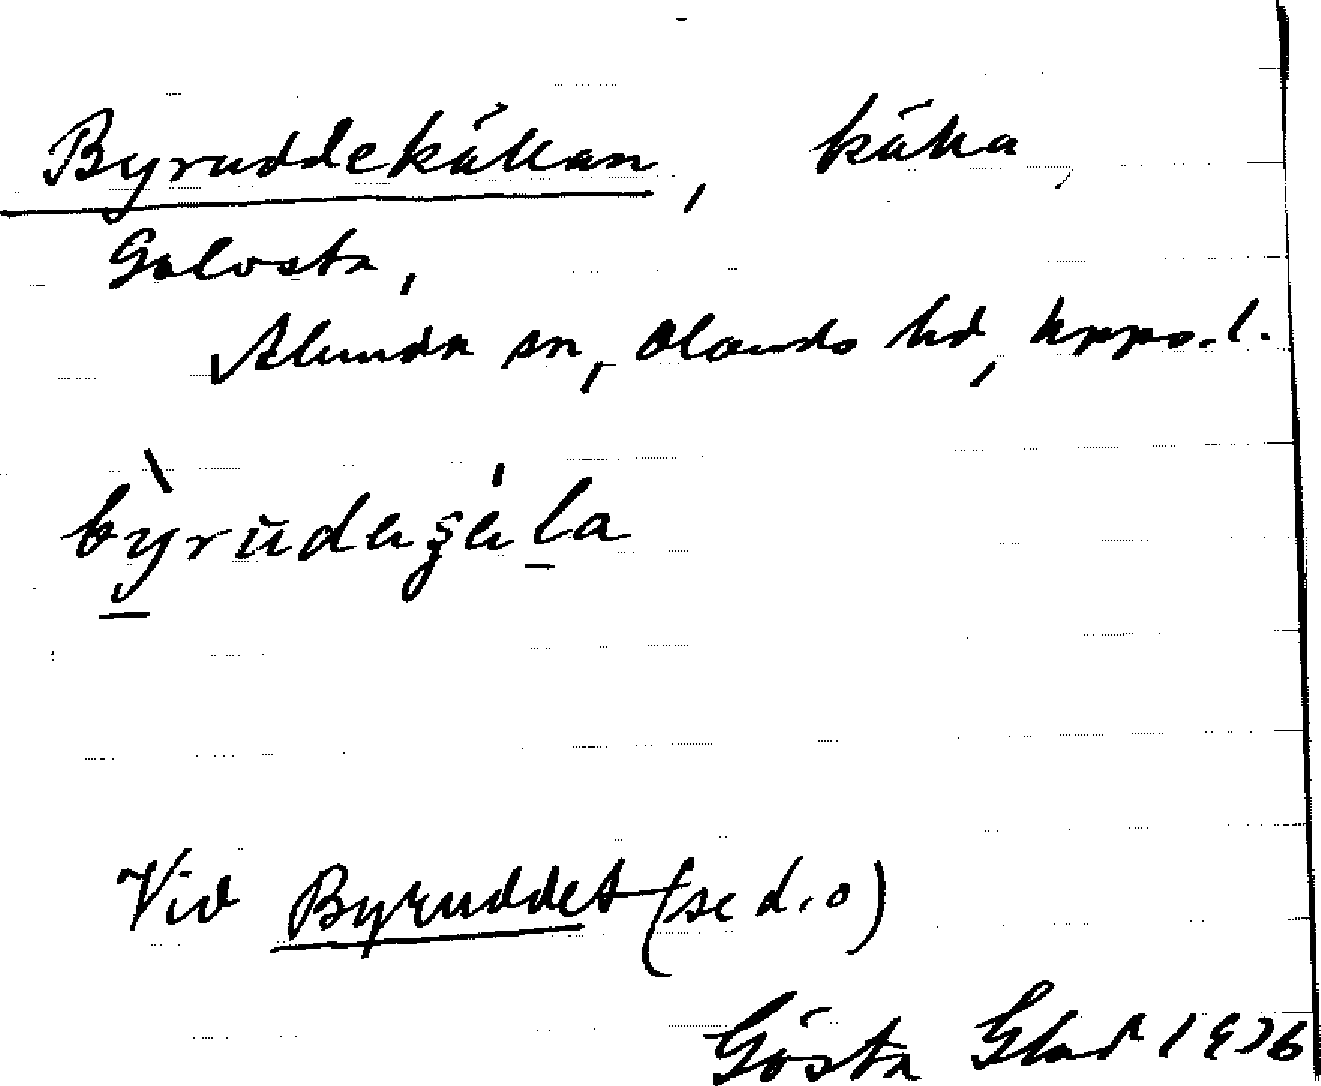 Byruddekällan, källa,
Golvsta,
Alunda sn, Olands hd, Upps.l.
Vid Byruddet (se d.o)
Gösta Glad 1936